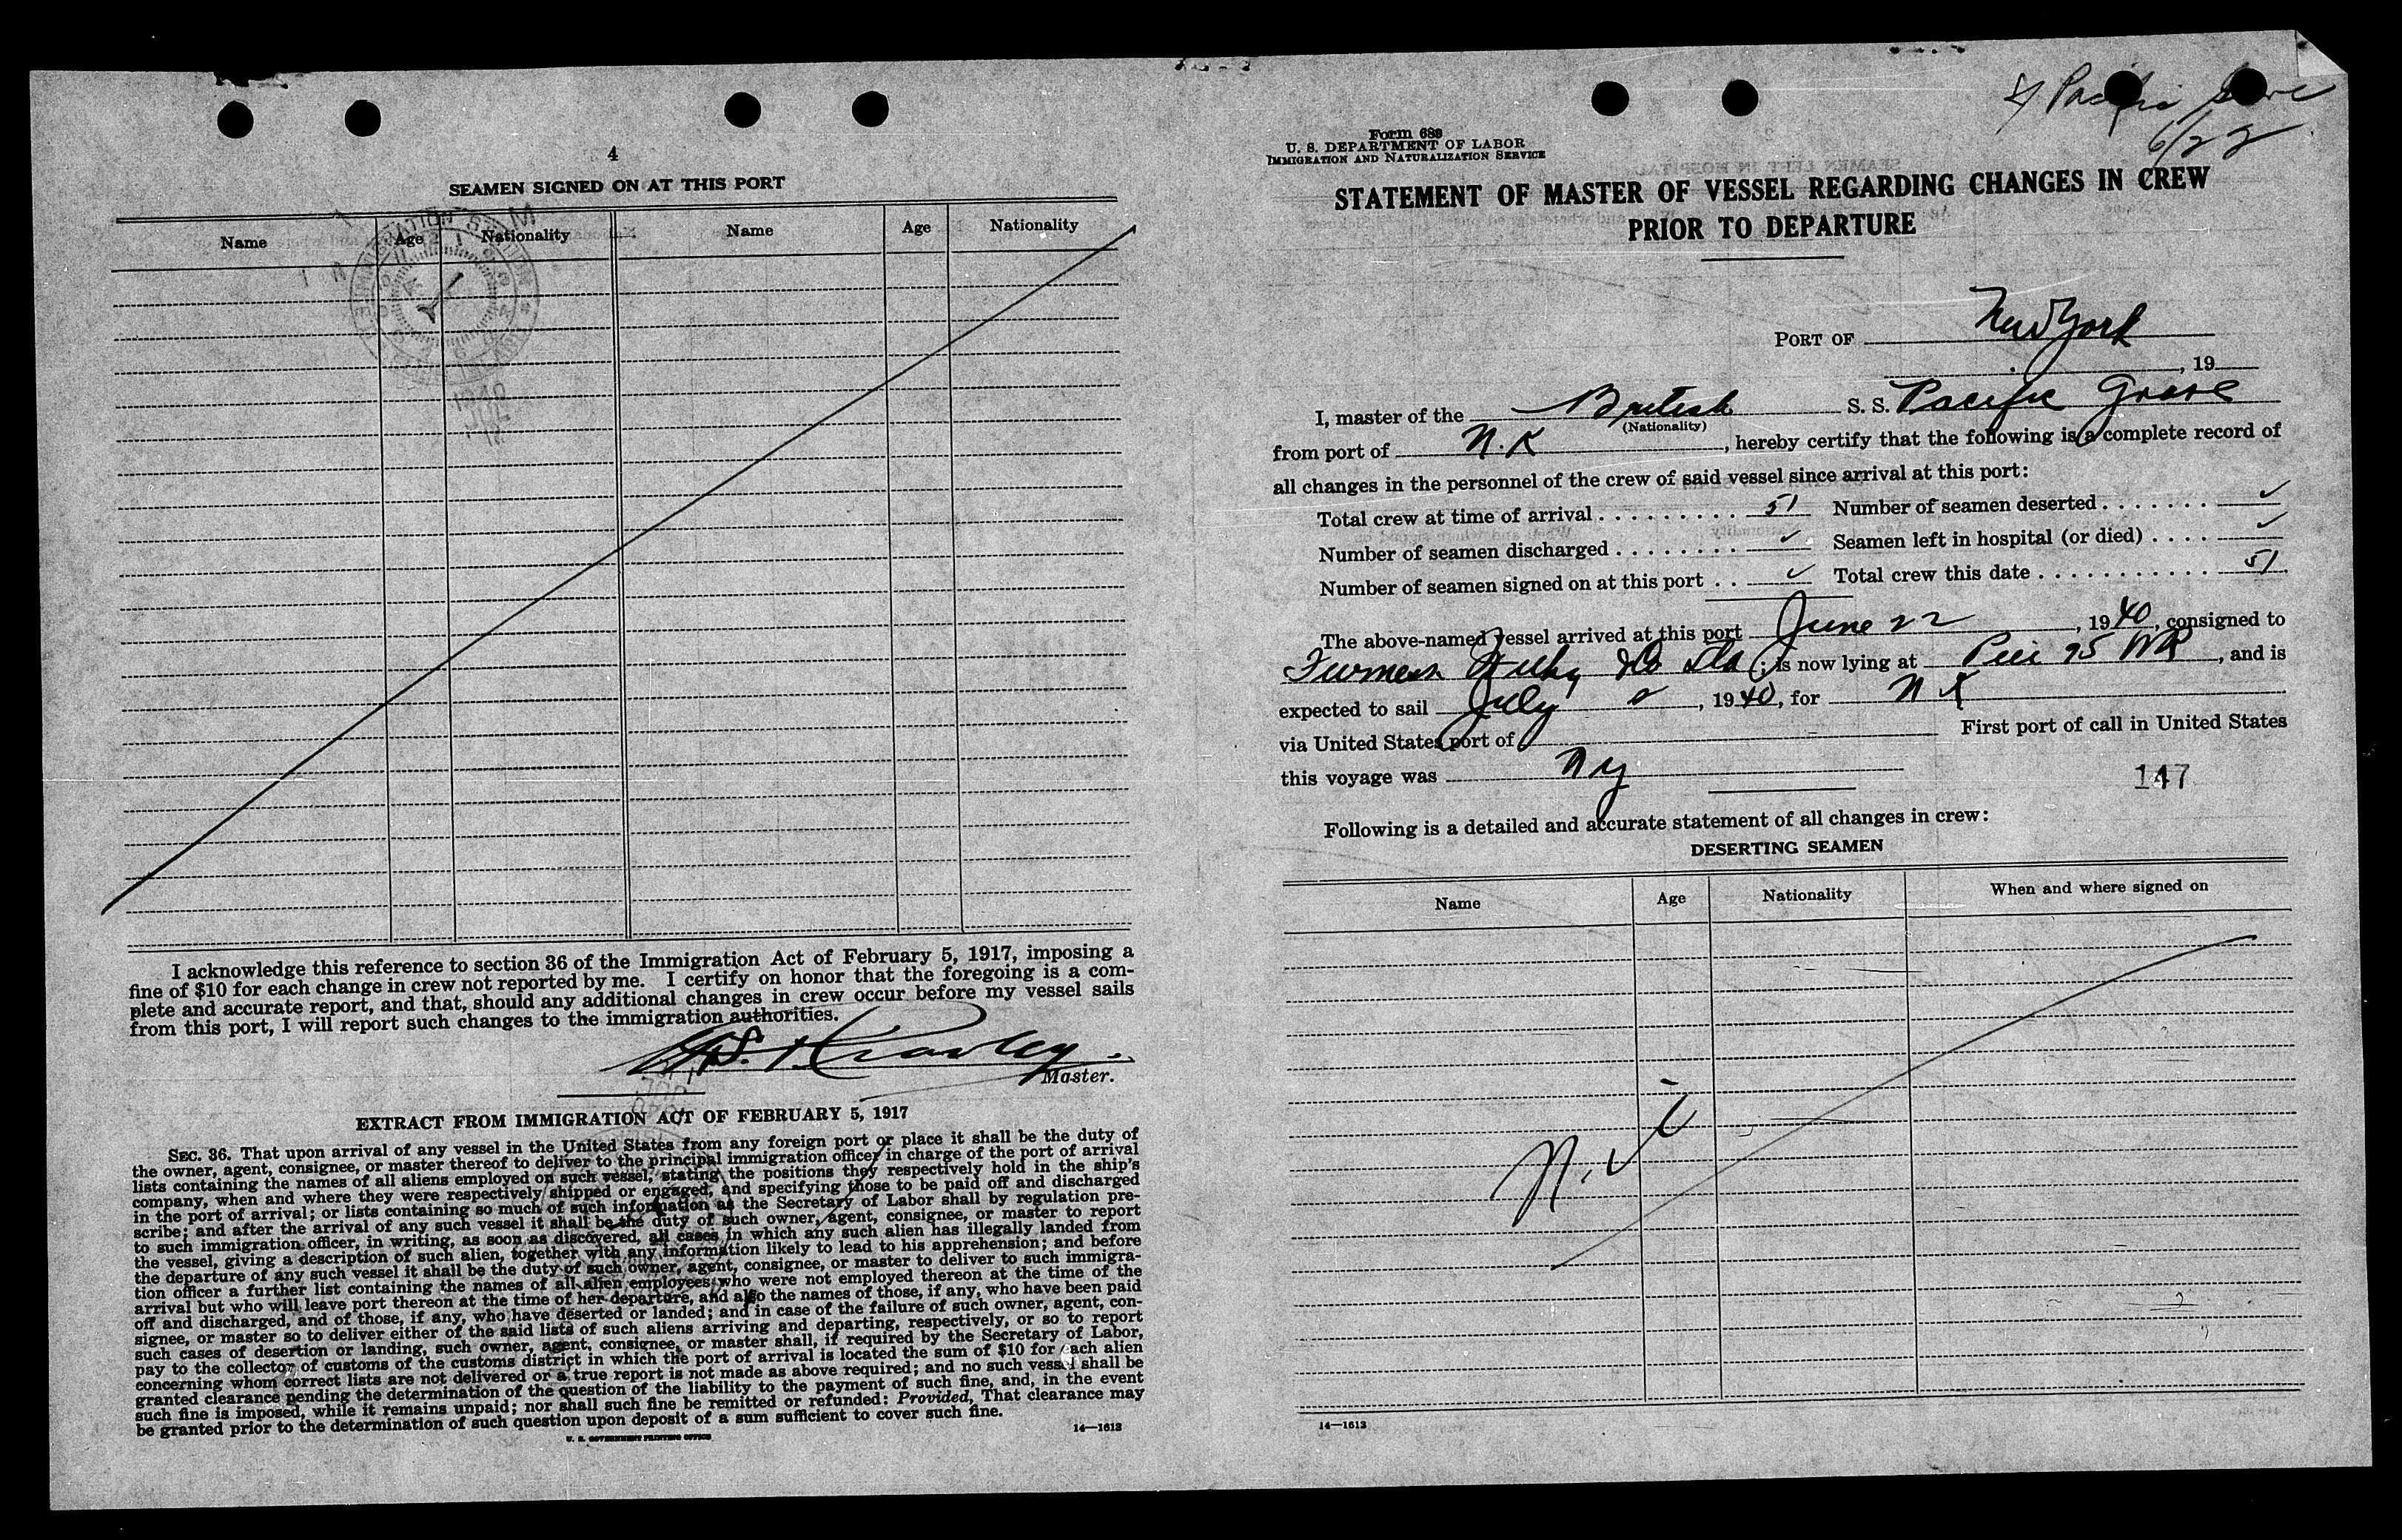 4
SEAMEN SIGNED ON AT THIS PORT
Name Age Nationality Name Age Nationality
I acknowledge this reference to section 36 of the Immigration Act of February 5, 1917, imposing a
fine of $10 for each change in crew not reported by me. I certify on honor that the foregoing is a com-
plete and accurate report, and that, should any additional changes in crew occur before my vessel sails
from this port, I will report such changes to the immigration authorities.
Master.
EXTRACT FROM IMMIGRATION ACT OF FEBRUARY 5, 1917
SEC. 36. That upon arrival of any vessel in the United States from any foreign port or place it shall be the duty of
the owner, agent, consignee, or master thereof to deliver to the principal immigration officer in charge of the port of arrival
lists containing the names of all aliens employed on such vessel, stating the positions they respectively hold in the ship's
company, when and where they were respectively shipped or engaged, and specifying those to be paid off and discharged
in the port of arrival; or lists containing so much of such information as the Secretary of Labor shall by regulation pre-
scribe; and after the arrival of any such vessel it shall be the duty of such owner, agent, consignee, or master to report
to such immigration officer, in writing, as soon as discovered, all cases in which any such alien has illegally landed from
the vessel, giving a description of such alien, together with any information likely to lead to his apprehension; and before
the departure of any such vessel it shall be the duty of such owner, agent, consignee, or master to deliver to such immigra-
tion officer a further list containing the names of all alien employees who were not employed thereon at the time of the
arrival but who will leave port thereon at the time of her departure, and also the names of those, if any, who have been paid
off and discharged, and of those, if any, who have deserted or landed; and in case of the failure of such owner, agent, con-
signee, or master so to deliver either of the said lists of such aliens arriving and departing, respectively, or so to report
such cases of desertion or landing, such owner, agent, consignee, or master shall, if required by the Secretary of Labor,
pay to the collector of customs of the customs district in which the port of arrival is located the sum of $10 for each alien
concerning whom correct lists are not delivered or a true report is not made as above required; and no such vessel shall be
granted clearance pending the determination of the question of the liability to the payment of such fine, and, in the event
such fine is imposed, while it remains unpaid; nor shall such fine be remitted or refunded: Provided, That clearance may
be granted prior to the determination of such question upon deposit of a sum sufficient to cover such fine.
U. S. GOVERNMENT PRINTING OFFICE
14—1613
Pacific Grove
6/22
Form 689
U. S. DEPARTMENT OF LABOR
IMMIGRATION AND NATURALIZATION SERVICE
STATEMENT OF MASTER OF VESSEL REGARDING CHANGES IN CREW
PRIOR TO DEPARTURE
PORT OF New York
, 19
I, master of the British S. S. Pacific Grove
(Nationality)
from port of N.K , hereby certify that the following is a complete record of
all changes in the personnel of the crew of said vessel since arrival at this port:
Total crew at time of arrival 51 Number of seamen deserted ✓
Number of seamen discharged ✓ Seamen left in hospital (or died) ✓
Number of seamen signed on at this port ✓ Total crew this date 51
The above-named vessel arrived at this port June 22, 1940, consigned to
Furness Withy & Co Ltd; is now lying at Pier 95 NR, and is
expected to sail July 2, 1940, for N K
via United States port of First port of call in United States
this voyage was N Y
147
Following is a detailed and accurate statement of all changes in crew:
DESERTING SEAMEN
Name Age Nationality When and where signed on
14—1613